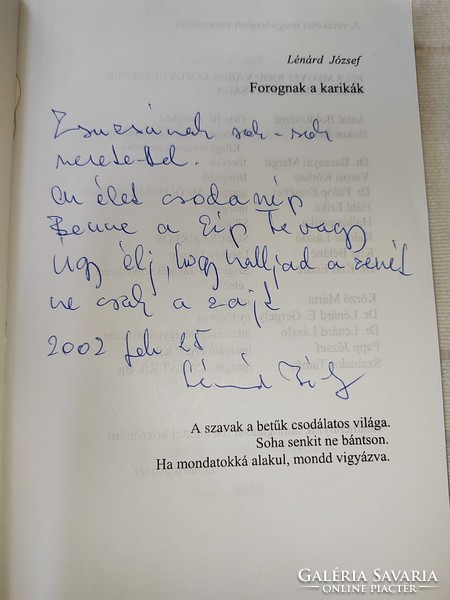 Lénárd József
Forognak a karikák
Zsuzsának sok-sok
szeretettel.
Az élet csodaszép
Benne a szép Te vagy
Úgy élj, hogy halljad a zenét
ne csak a zajt
2002 feb 25
Lénárd József
A szavak a betűk csodálatos világa.
Soha senkit ne bántson.
Ha mondatokká alakul, mondd vigyázva.
GALÉRIA SAVARIA
ONLINE PIACTÉR